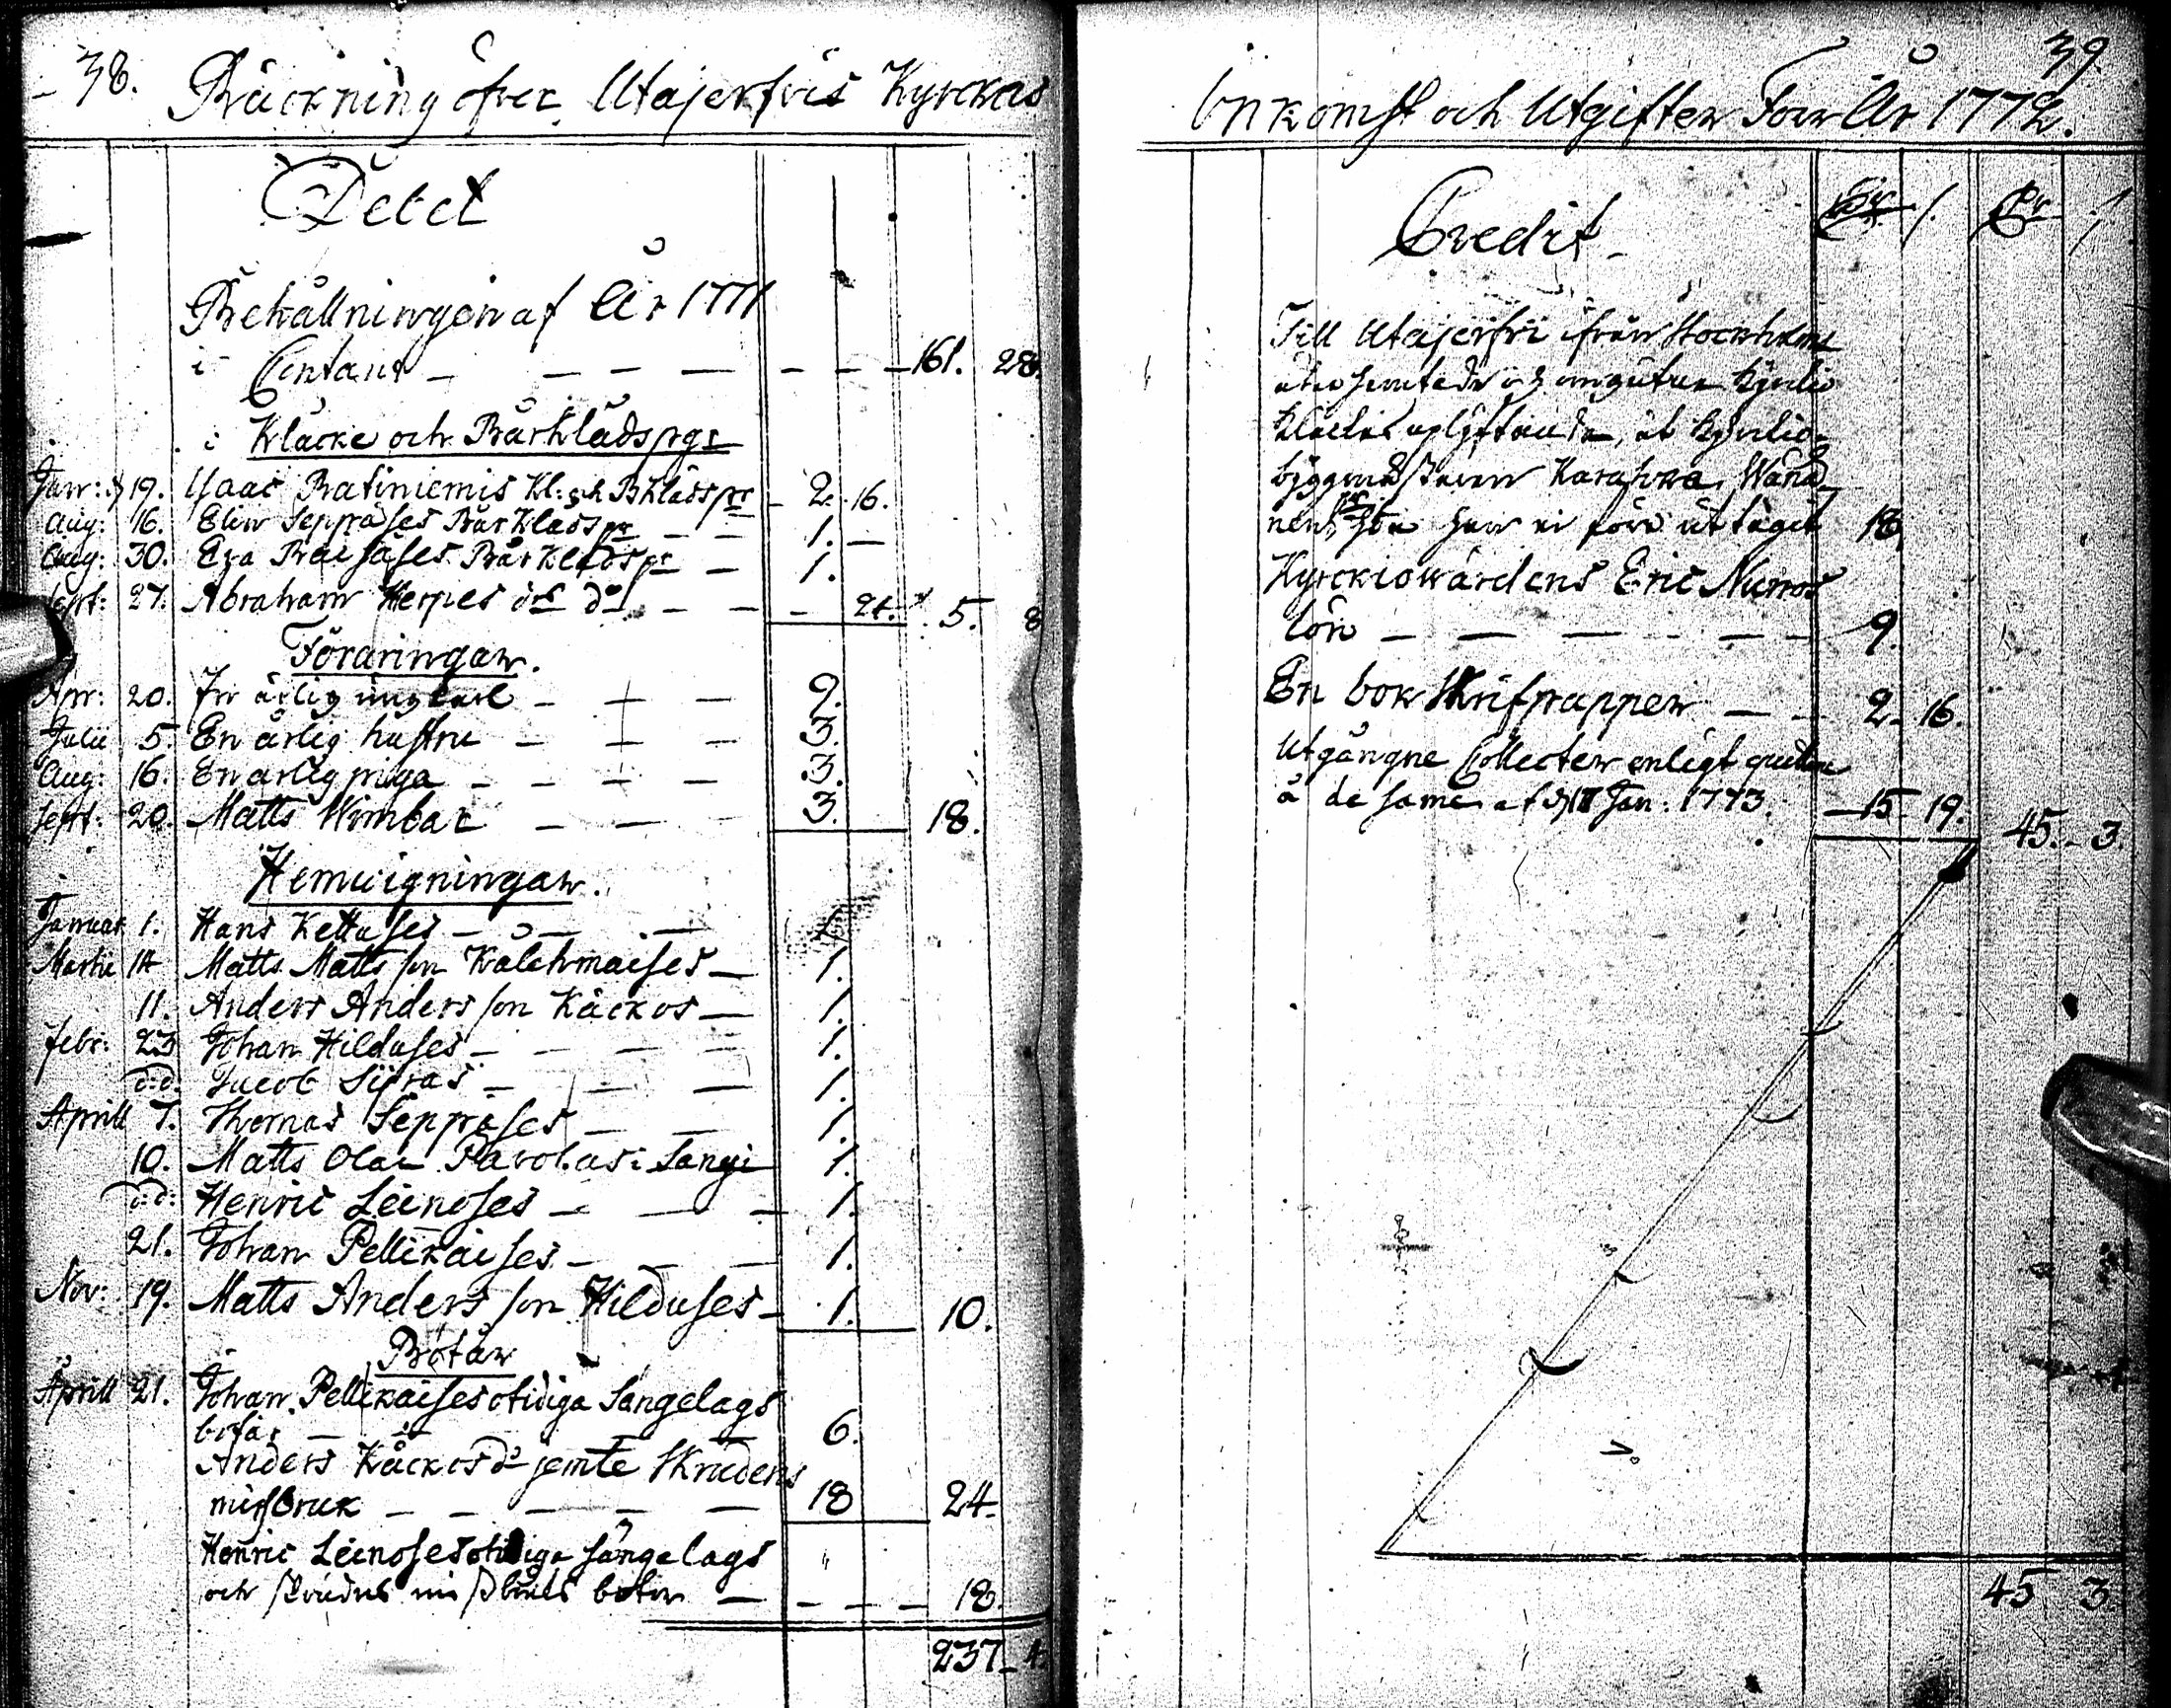 38.
Räckning öfver Utajerfvis Kyrckas
Debet
Behållningen af År 1771
i Contant — — — — — — 161. 28.
i Kläcke och Bårklädspgr
Janr: 19. Isaac Ratiniemis Kl: och Bklädspr – 2. 16.
Aug: 16. Elin Seppäses Bårklädspr — — 1. —
Aug: 30. Eva Bårklädspr — 1.
Sept: 27. Abraham Herpes do — — — 24. 5. 8
Föräringar.
Apr: 20. ärlig ungkarl — — — 9.
Julii 5. En ärlig hustru — — — 3.
Aug: 16. En ärlig piga — — — — 3.
Sept: 20. Matts Wimbar — — — 3. 18.
Hemwigningar.
Januar 1. Hans Kettuses — — — 1
Martii 14 Matts Mattsson Kälehmäises — 1.
11. Anders Andersson Käckos — 1.
Febr: 23 Johan Hilduses — — — — 1.
d:d: Jacob Siiras — — — 1.
Aprill 7. Thomas Seppäses — — 1.
10. Matts Olai Pavolas i Sangi 1.
d:d: Henric Leinoses — — — 1.
21. Johan Pellikaises — — — 1.
Nov: 19. Matts Andersson Hilduses – 1. 10.
Böter
Aprill 21. Johan Pellikaises otidiga Sängelags
böter — — — — 6.
Anders Käckos do jemte Skrudens
missbruk — — — — — 18 24.
Henric Leinoses otidiga sängelags
och skruds missbruks böter — — — — 18.
237 – 4.
39.
Inkomst och Utgifter För År 1772.
Credit
Till Utajerfvi ifrån Stockholm
Kyrckio
uplyftande, åt Kyrckio-
byggmästaren
nen, uttaget 18.
Kyrckiowärdens Eric Nurros
lön — — — — — 9.
En bok Skrifpapper — — 2 – 16.
Utgångne Collecter enligt
å de samma af d 18 Jan: 1773. — 15 – 19. 45. – 3.
45 3